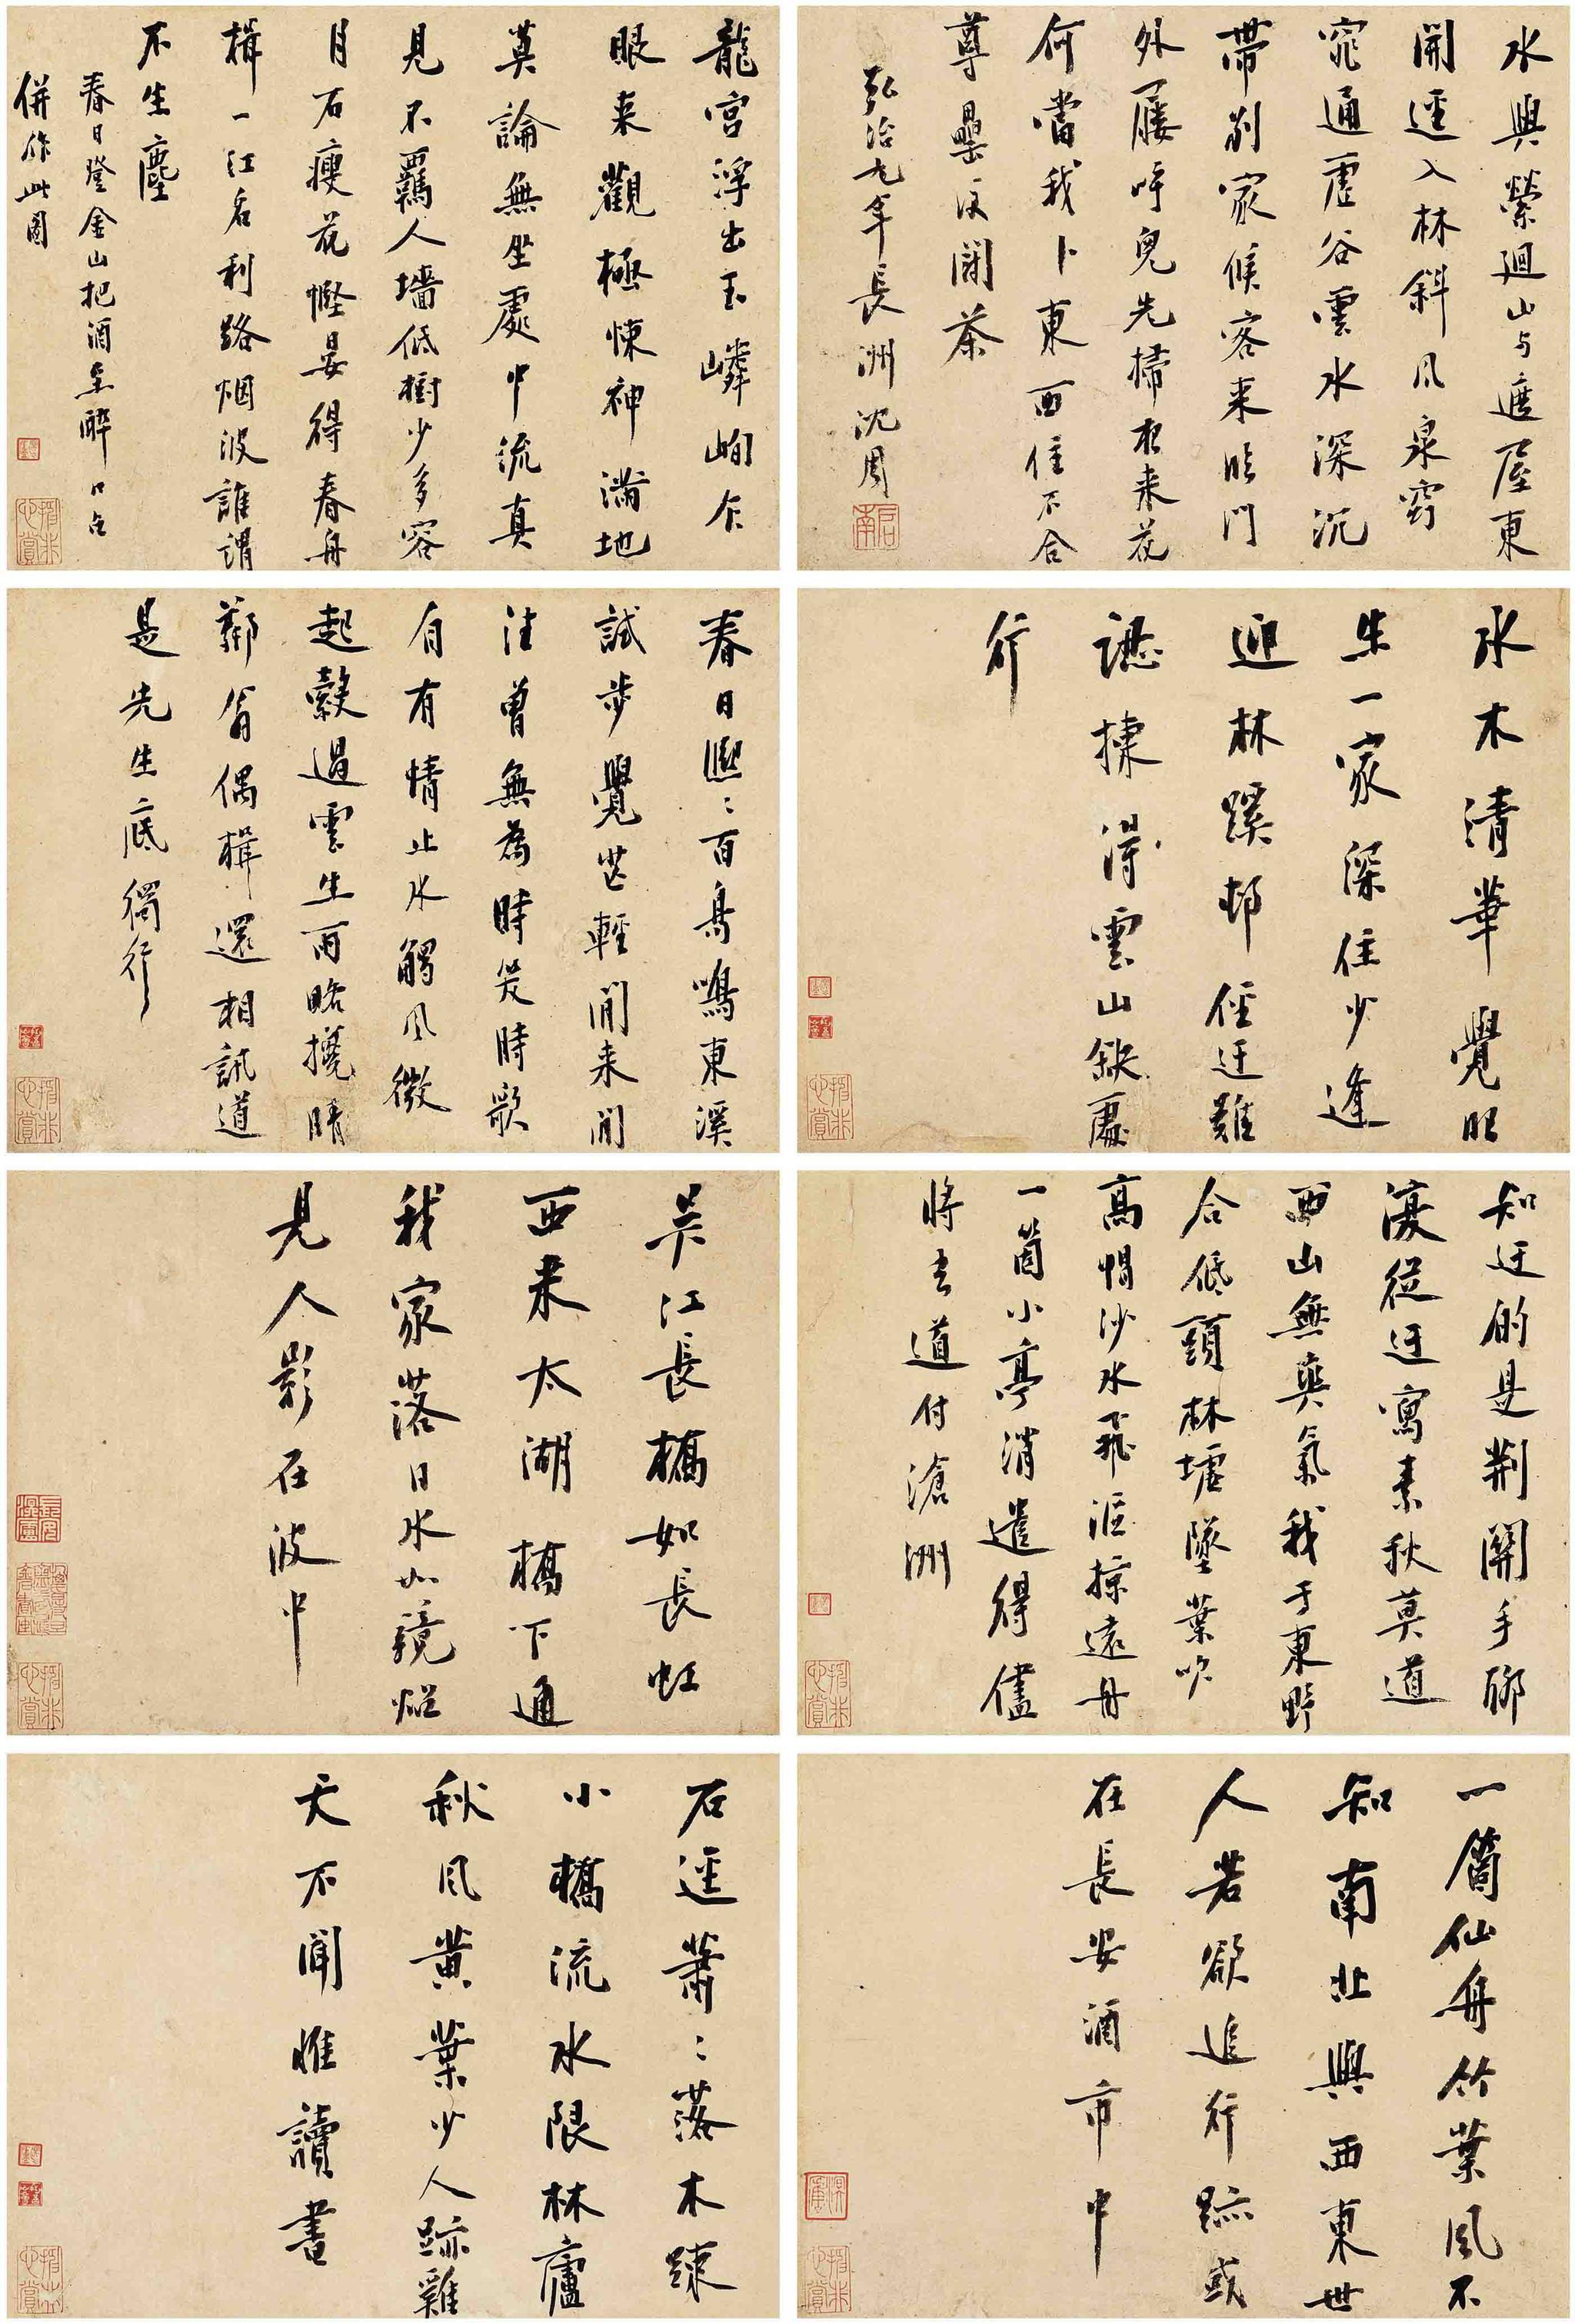 水與縈迴山與遮屋東
開逕入林斜風泉窈
窕通虛谷雲水深沉
帶別家候客來時門
外屨呼兒先掃夜來花
何當我卜東西住不合
尊罍須鬪茶
弘治九年長洲沈周
啓南
龍宮浮出玉嶙峋乍
眼来觀極悚神滿地
莫論無坐處中流真
見不羈人墻低樹少多容
月石瘦花慳晏得春舟
楫一江名利路烟波誰謂
不生塵
春日登金山把酒至醉口占
併作此圖
水木清華覺眼
生一家深住少逢
迎林蹊邨徑迂難
認揀得雲山缺處
行
春日熙〻百鳥鳴東溪
試步覺芒輕閒来閒
往曾無為時笑時歌
自有情止水觸風微
起縠過雲生雨略攙晴
鄰翁偶楫還相訊道
是先生底獨行
知迂的是荆關手聊
復從迂寫素秋莫道
西山無爽氣我于東野
合低頭林墟墜葉吹
高帽沙水飛漚掠遠舟
一箇小亭消遣得儘
將吾道付滄洲
吴江長橋如長虹
西来太湖橋下通
我家落日水如鏡縱
見人影在波中
一個仙舟竹葉風不
知南北與西東世
人若欲追行跡或
在長安酒市中
石逕蕭〻落木疎
小橋流水限林廬
秋風黄葉少人跡雞
犬不聞惟讀書